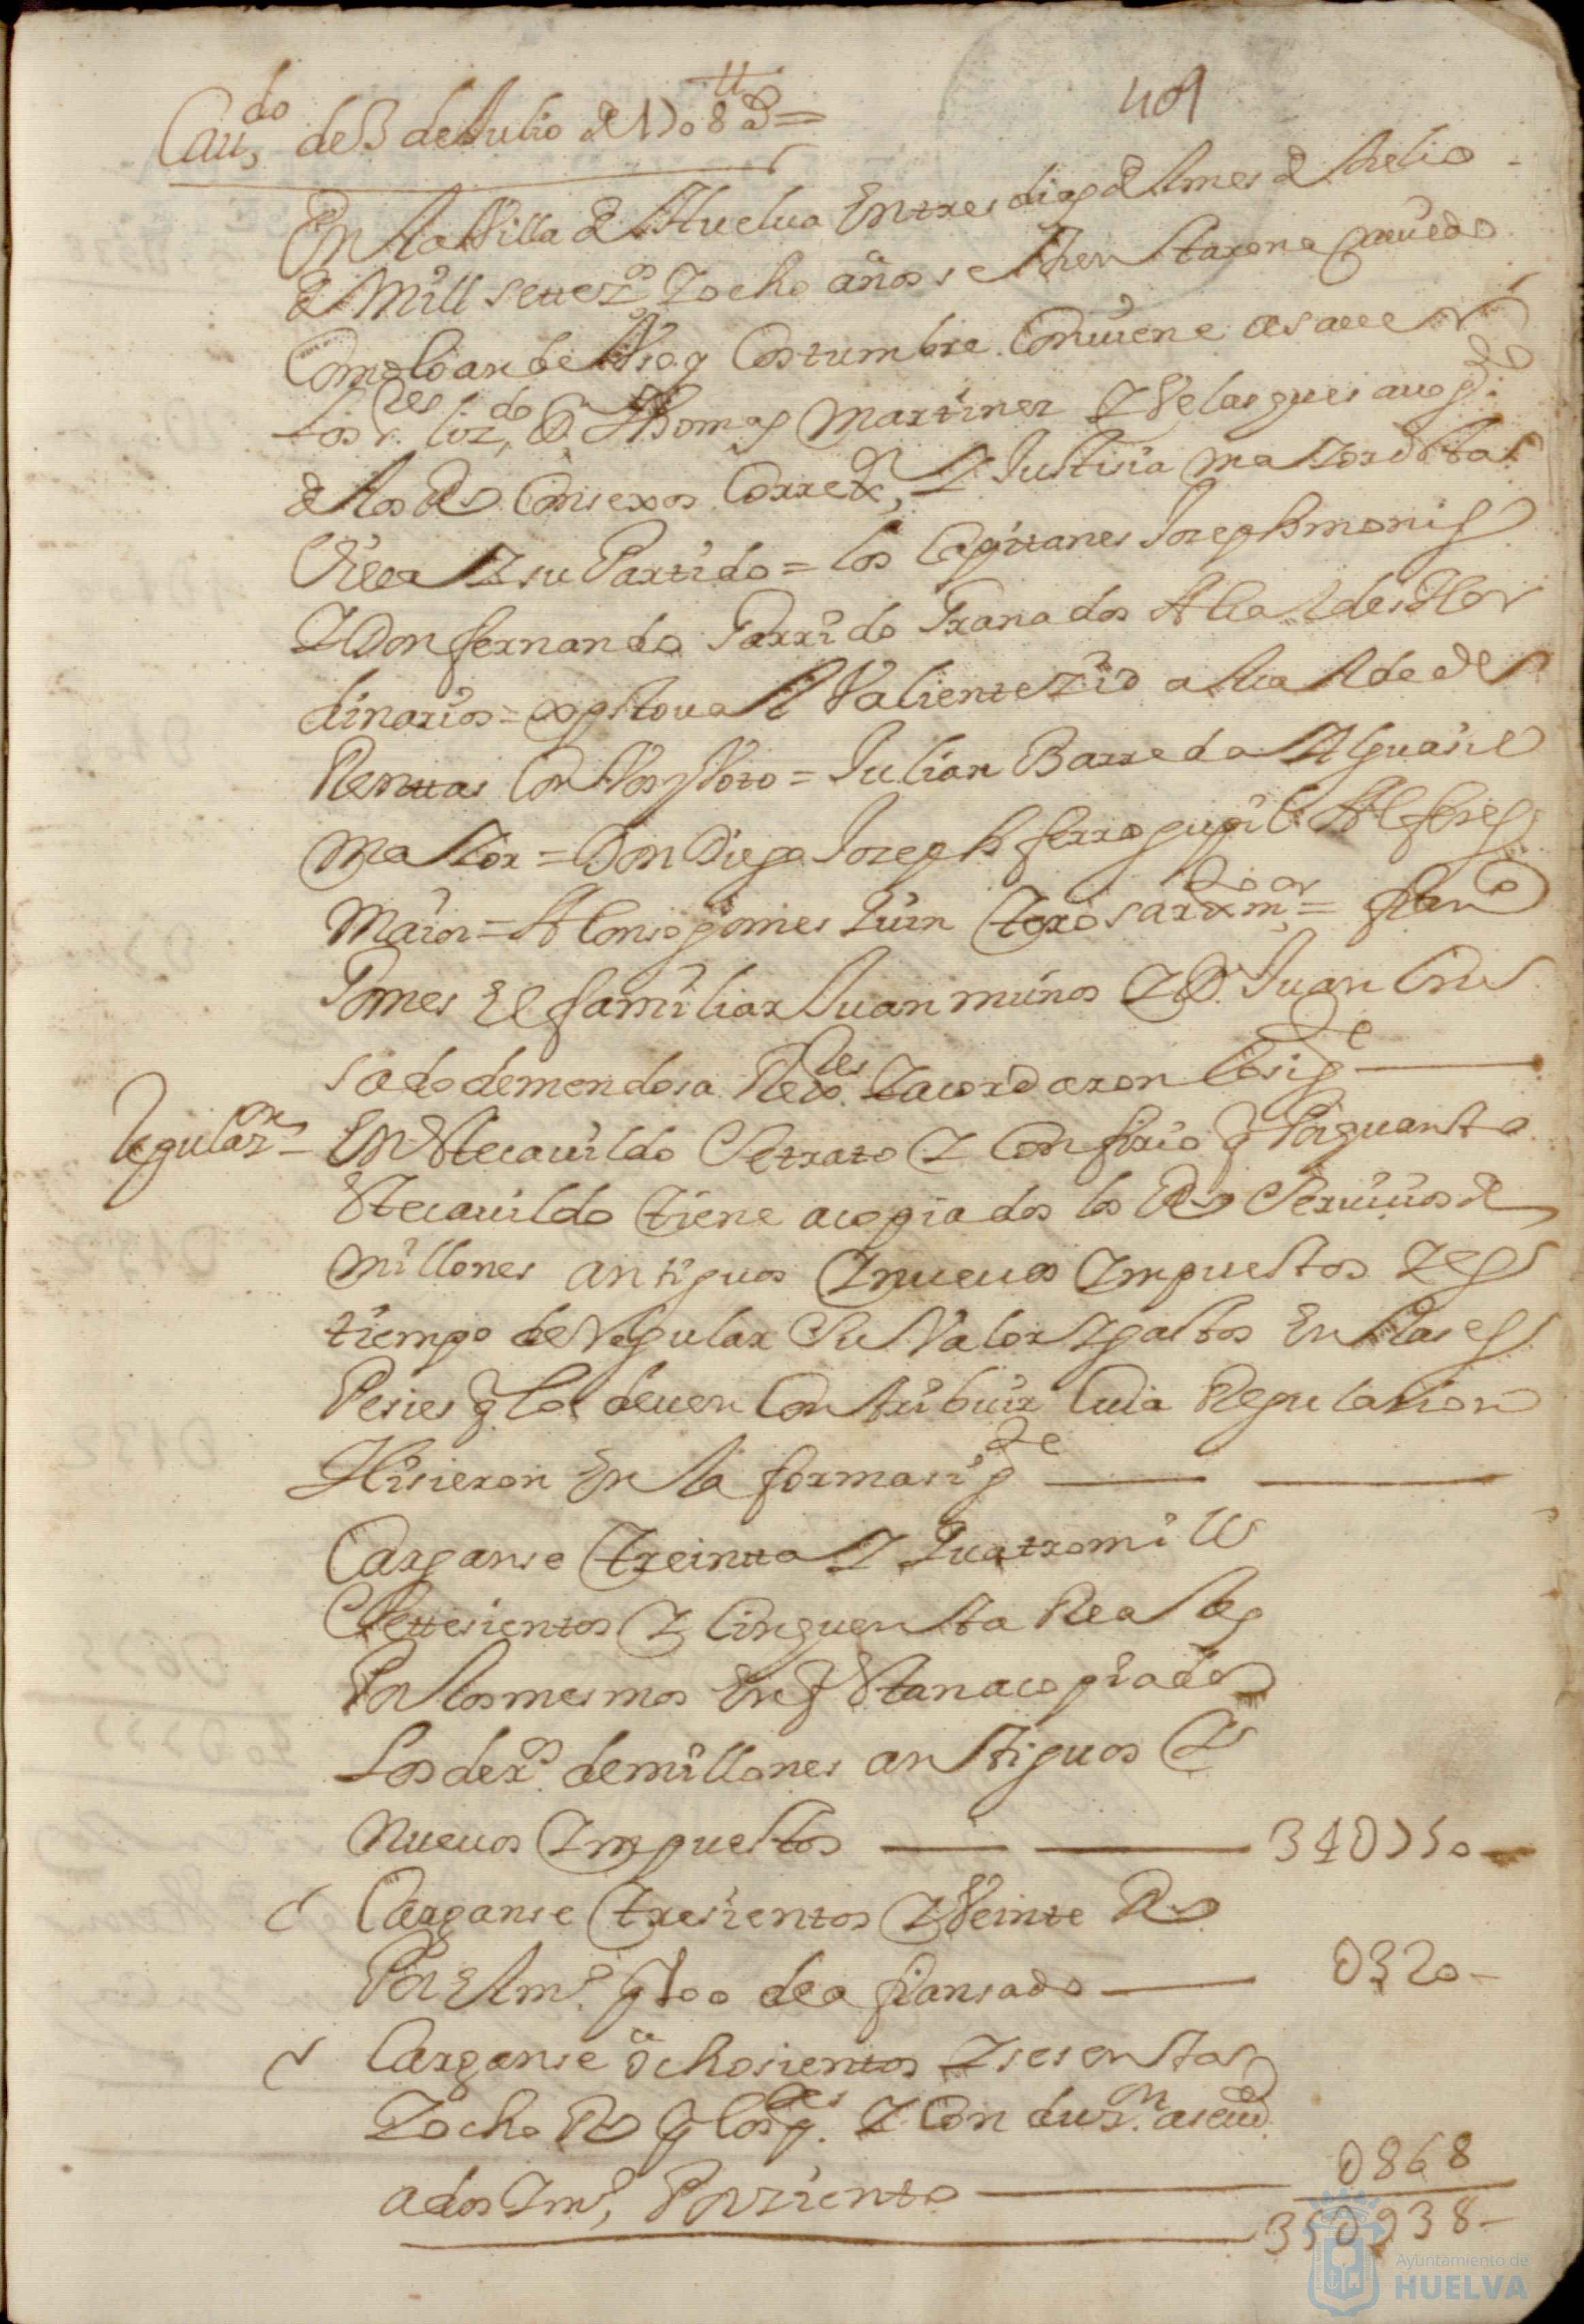 409
Cauᵈᵒ de 3 de Jullio de 1708 aˢ =
En la Villa de Huelua En tres dias del mes de Julio
de Mill setteᶻᵒˢ y ocho años se Juntaron a Cauildo
Como lo an de Vso y Costumbre Conuiene a saver
los sʳᵉˢ lizᵈᵒ D. Thomas Martinez y Velasques auogᵈᵒ
de los Rˢ Consexos Correxᵒʳ y Justisia maior desta
Villa y su Partido = los Capitanes Joseph monis
y Don fernando Garrido Granados Alcaldes Hor
dinarios = Xpstoual Valiente zid alcalde de
Renttas Con Vos y Voto = Julian Barreda Alguasil
Maior = Don Diego Joseph ferro pupil Alferes
Maior = Alonso gomes Quintero sarxᵗᵒ mᵒʳ = franᶜᵒ
Gomes El familiar Juan munos y D. Juan Cru
sado de mendosa Rexᵒʳᵉˢ y acordaron lo sigᵗᵉ
Regulazᵒⁿ = En Este cauildo Se trato y Confirio q Por quanto
Este cauildo tiene acopiados los Rˢ Seruiuios de
millones antiguos y nueuos Impuestos y es
tiempo de Regular Su Valor y gastos En las es
Pesies q lo deuen Contribuir Cuia Regulasion
Hisieron En la forma sigᵗᵉ
Carganse treintta y Quatro mill
Settesientos y Cinquenta Reales
Por los mesmos En q Estan acopiados
Los derᵒˢ de millones antiguos y
Nueuos Impuestos 34U750
Carganse tresientos y Veinte Rˢ
Por El mᵒ
de a fiansado 0320
Carganse ochosientos y sesenta
y ocho Rˢ q los
y Conduzᵒⁿ
Por ziento 0868
35U938
Ayuntamiento de
HUELVA